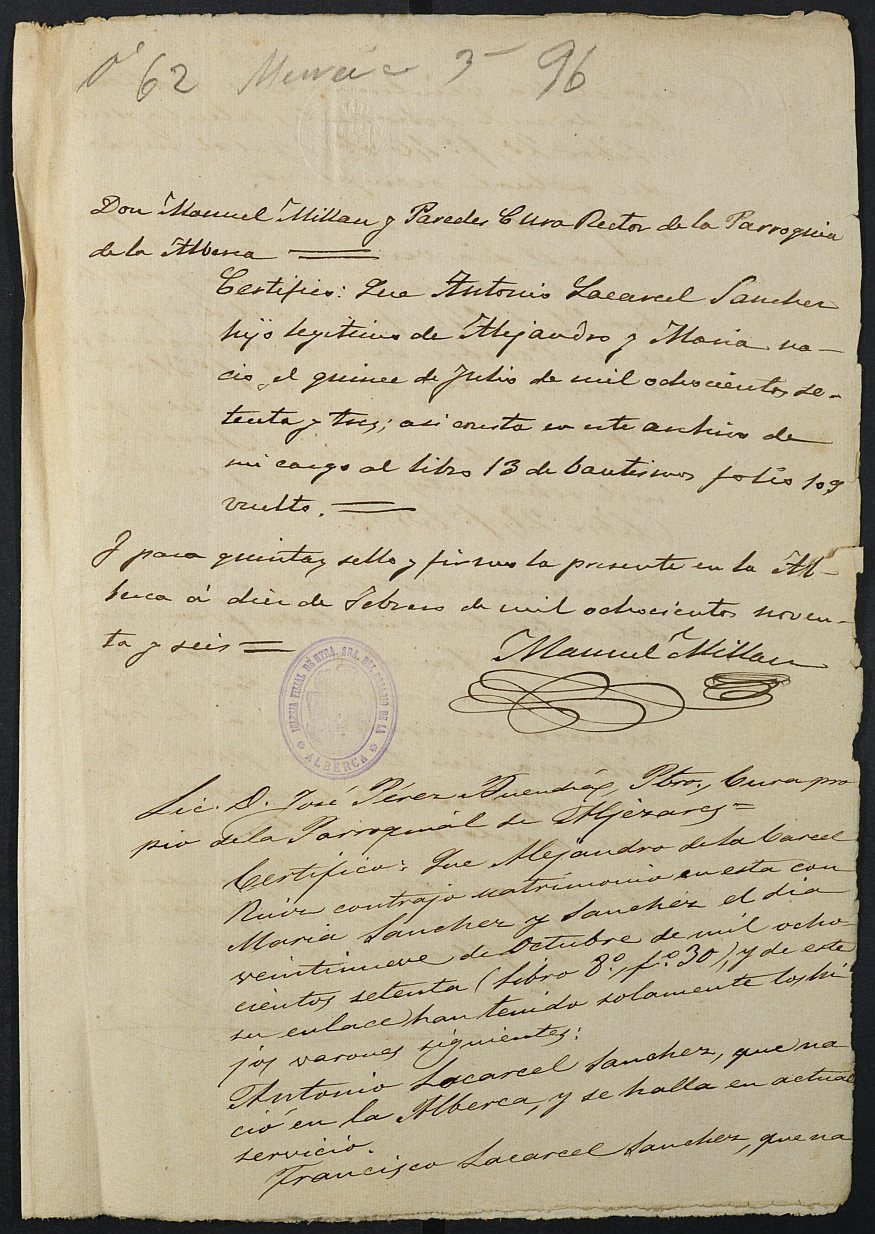 Nº 62 Murcia 3 - 96
Don Manuel Millan y Paredes Cura Rector de la Parroquia
de la Alberca
Certifico: Que Antonio Lacarcel Sanchez
hijo legitimo de Alejandro y Maria na-
cio el quince de Julio de mil ochocientos se-
tenta y tres; asi consta en este archivo de
mi cargo al libro 13 de bautismos folio 109
vuelto.
Y para quintas, sello y firmo la presente en la Al-
berca á diez de Febrero de mil ochocientos noven-
ta y seis
Manuel Millan
IGLESIA FILIAL DE NTRA. SRA. DEL ROSARIO DE LA
ALBERCA
Lic. D. José Pérez Buendía, Pbro., Cura pro
pio de la Parroquial de Aljézares=
Certifico: Que Alejandro de la Carcel
contrajo matrimonio en esta con
Maria Sanchez y Sanchez el dia
veintinueve de Octubre de mil ocho-
cientos setenta (libro 8.º, f.º 30), y de este
su enlace han tenido solamente los hi
jos varones siguientes:
Antonio Lacarcel Sanchez, que na
ció en la Alberca, y se halla en actual
servicio.
Francisco Lacarcel Sanchez, que na